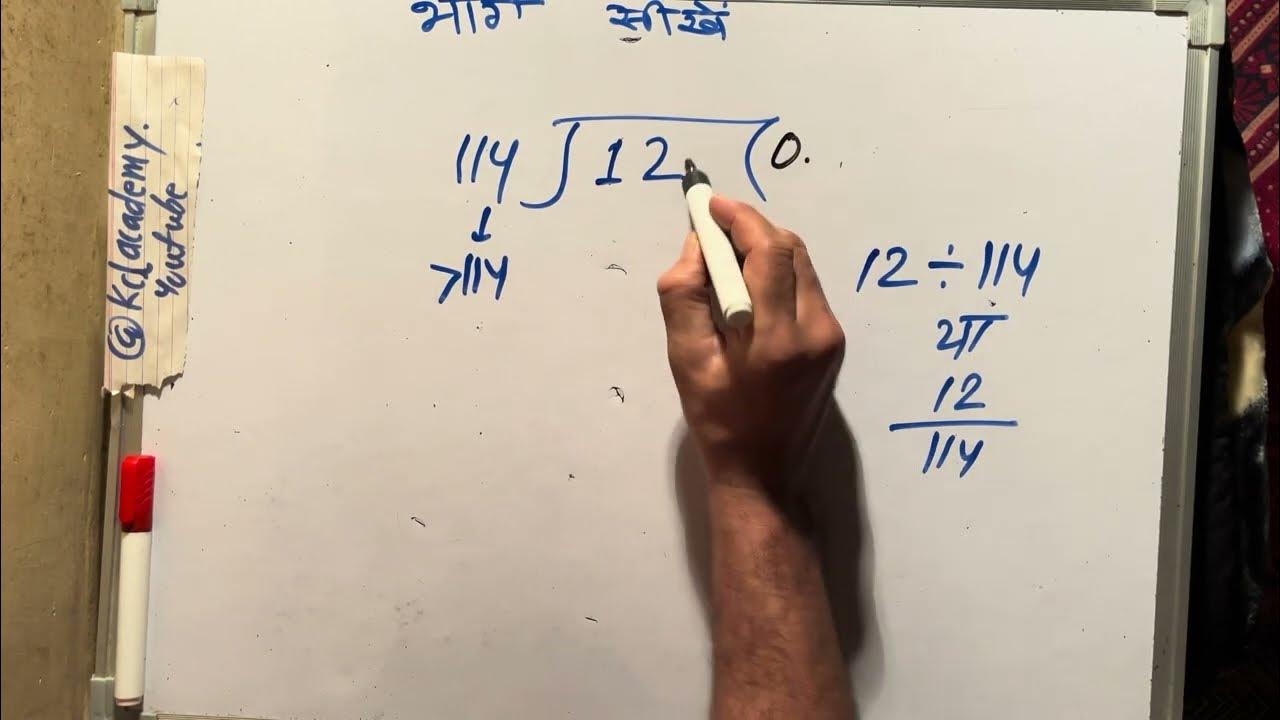 भाग सीखें
114 ) 12 ( 0.
↓
>114
12 ÷ 114
या
12
114
@Kclacademy.
Youtube